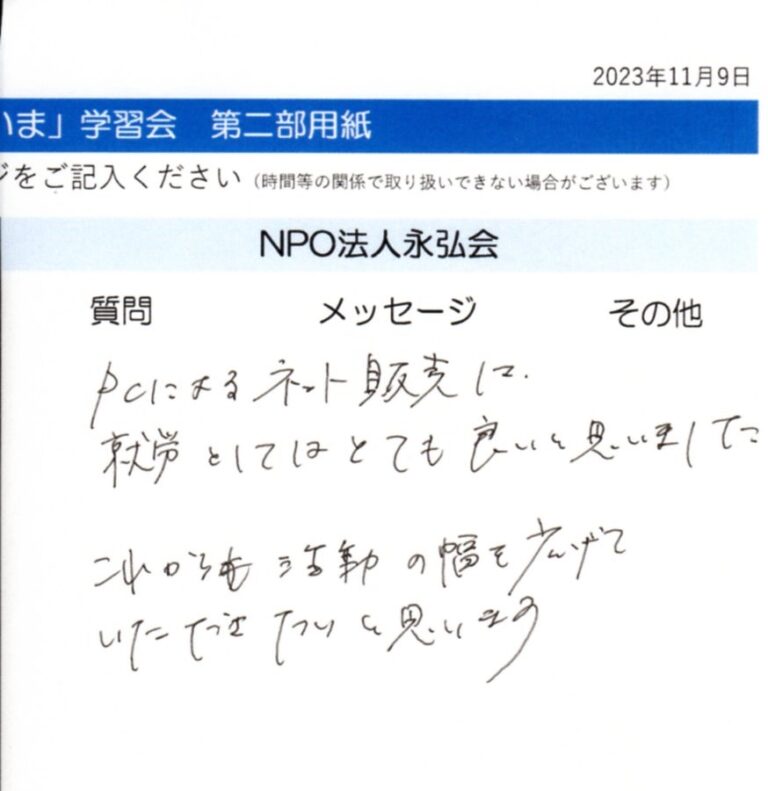 2023年11月9日
いま」学習会　第二部用紙
ジをご記入ください（時間等の関係で取り扱いできない場合がございます）
NPO法人永弘会
質問　メッセージ　その他
PCによるネット販売は、
就労としてはとても良いと思いました
これからも活動の幅を広げて
いただきたいと思います